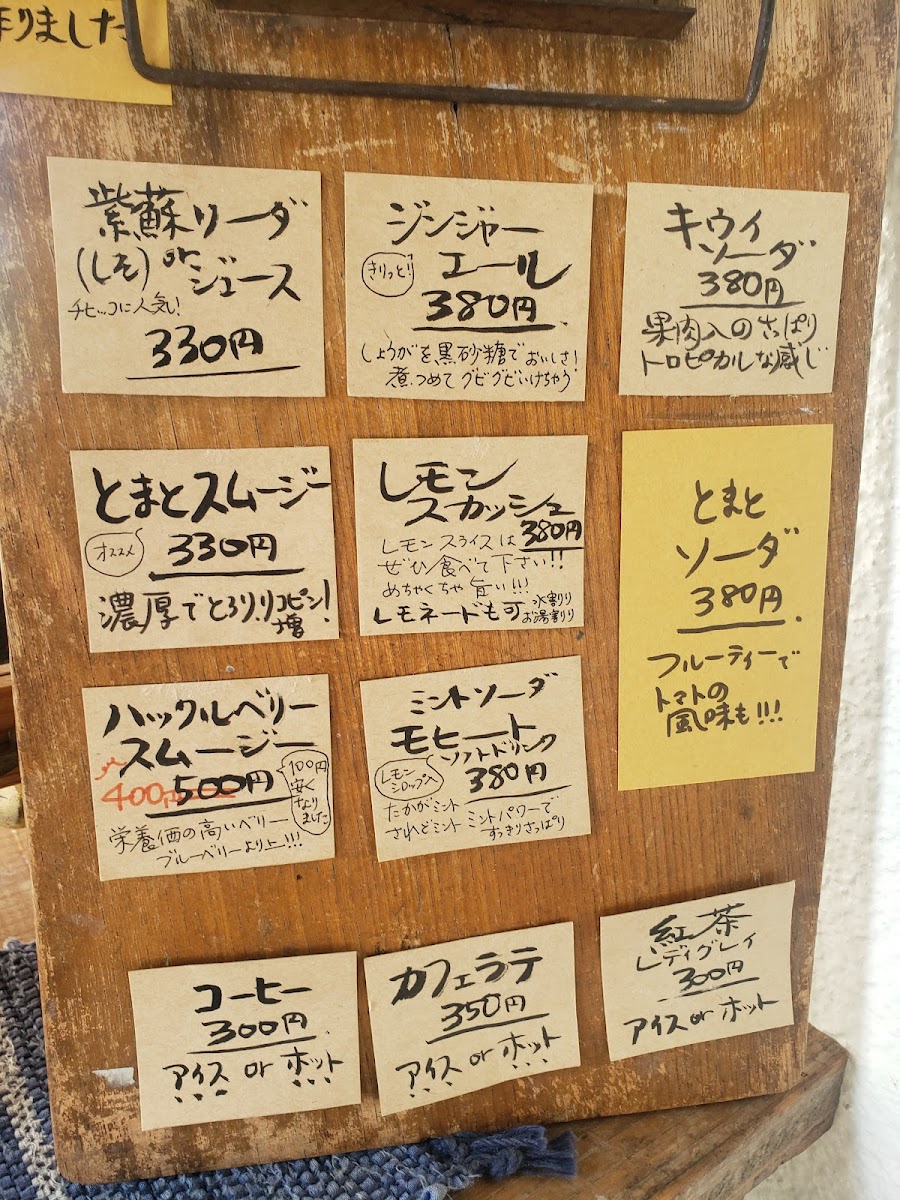 りました
紫蘇ソーダ
(しそ) or ジュース
チビッコに人気!
330円
ジンジャー
エール
きりっと!
380円
しょうがを黒砂糖で おいしさ!
煮つめて グビグビいけちゃう
キウイ
ソーダ
380円
果肉入のさっぱり
トロピカルな感じ
とまとスムージー
オススメ
330円
濃厚でとろり、リコピン!
増
レモン
スカッシュ
380円
レモンスライスは
ぜひ食べて下さい!!
めちゃくちゃ旨い!!!
レモネードも可 水割り
お湯割り
とまと
ソーダ
380円
フルーティーで
トマトの
風味も!!!
ハックルベリー
スムージー
400円 500円
100円
安く
なり
ました
栄養価の高いベリー
ブルーベリーより上!!!
ミントソーダ
モヒート
ソフトドリンク
レモン
シロップ入
380円
たかがミント
されどミント ミントパワーで
すっきりさっぱり
コーヒー
300円
アイス or ホット
カフェラテ
350円
アイス or ホット
紅茶
レディグレイ
300円
アイス or ホット